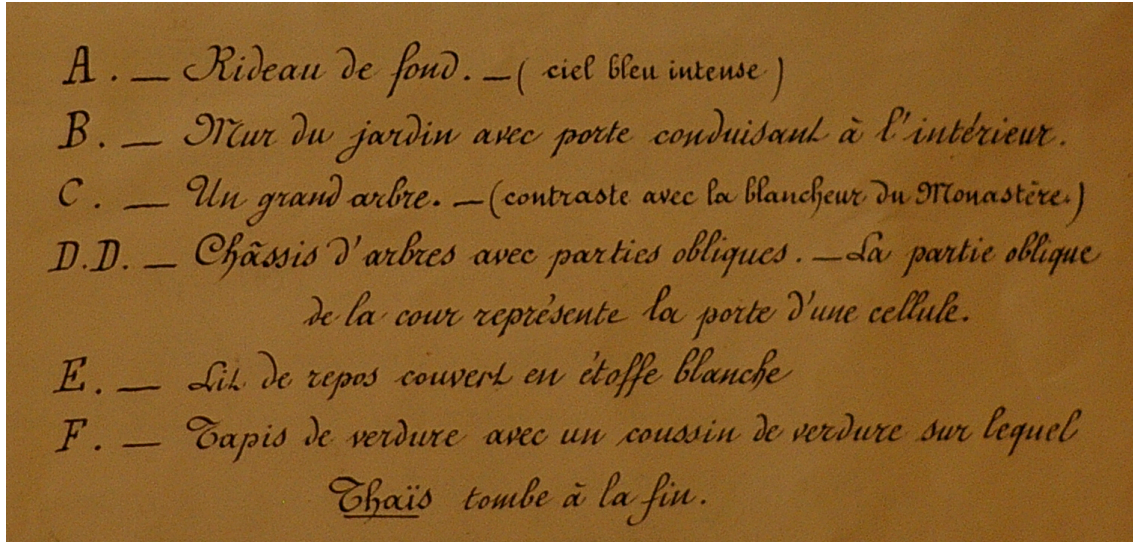 A. — Rideau de fond. — ( ciel bleu intense )
B. — Mur du jardin avec porte conduisant à l'intérieur.
C. — Un grand arbre. — (contraste avec la blancheur du Monastère.)
D.D. — Châssis d'arbres avec parties obliques. — La partie oblique
de la cour représente la porte d'une cellule.
E. — Lit de repos couvert en étoffe blanche
F. — Tapis de verdure avec un coussin de verdure sur lequel
Thaïs tombe à la fin.